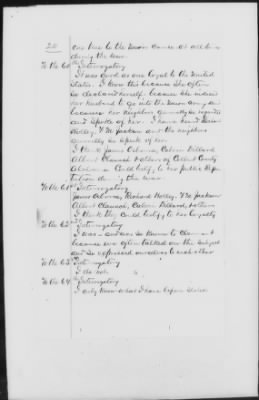 20
and true to the Union cause at all times
during the war.
To the 60th Interrogatory
It was good as one loyal to the United
States. I know this because she often
so declared herself. because she induced
her husband to go into the Union army and
because her neighbors generally so regarded
and spoke of her. I have heard
Holley, T M Jackson and the neighbors
generally so speak of her.
I think James Osborne, Calvin Dillard
Albert Clauncch & others of Colbert County
Alabama Could testify to her public Repu-
tation during the war.
To the 61st Interrogatory
James Osborne, Richard Holley, T M Jackson
Albert Clauncch, Calvin Dillard, & others
I think they Could testify to her loyalty
To the 62nd Interrogatory
I was and was so known to Claimant
because we often talked on the subject
and so expressed ourselves to each other
To the 63rd Interrogatory
I do not.
To the 64th Interrogatory
I only know what I have before stated